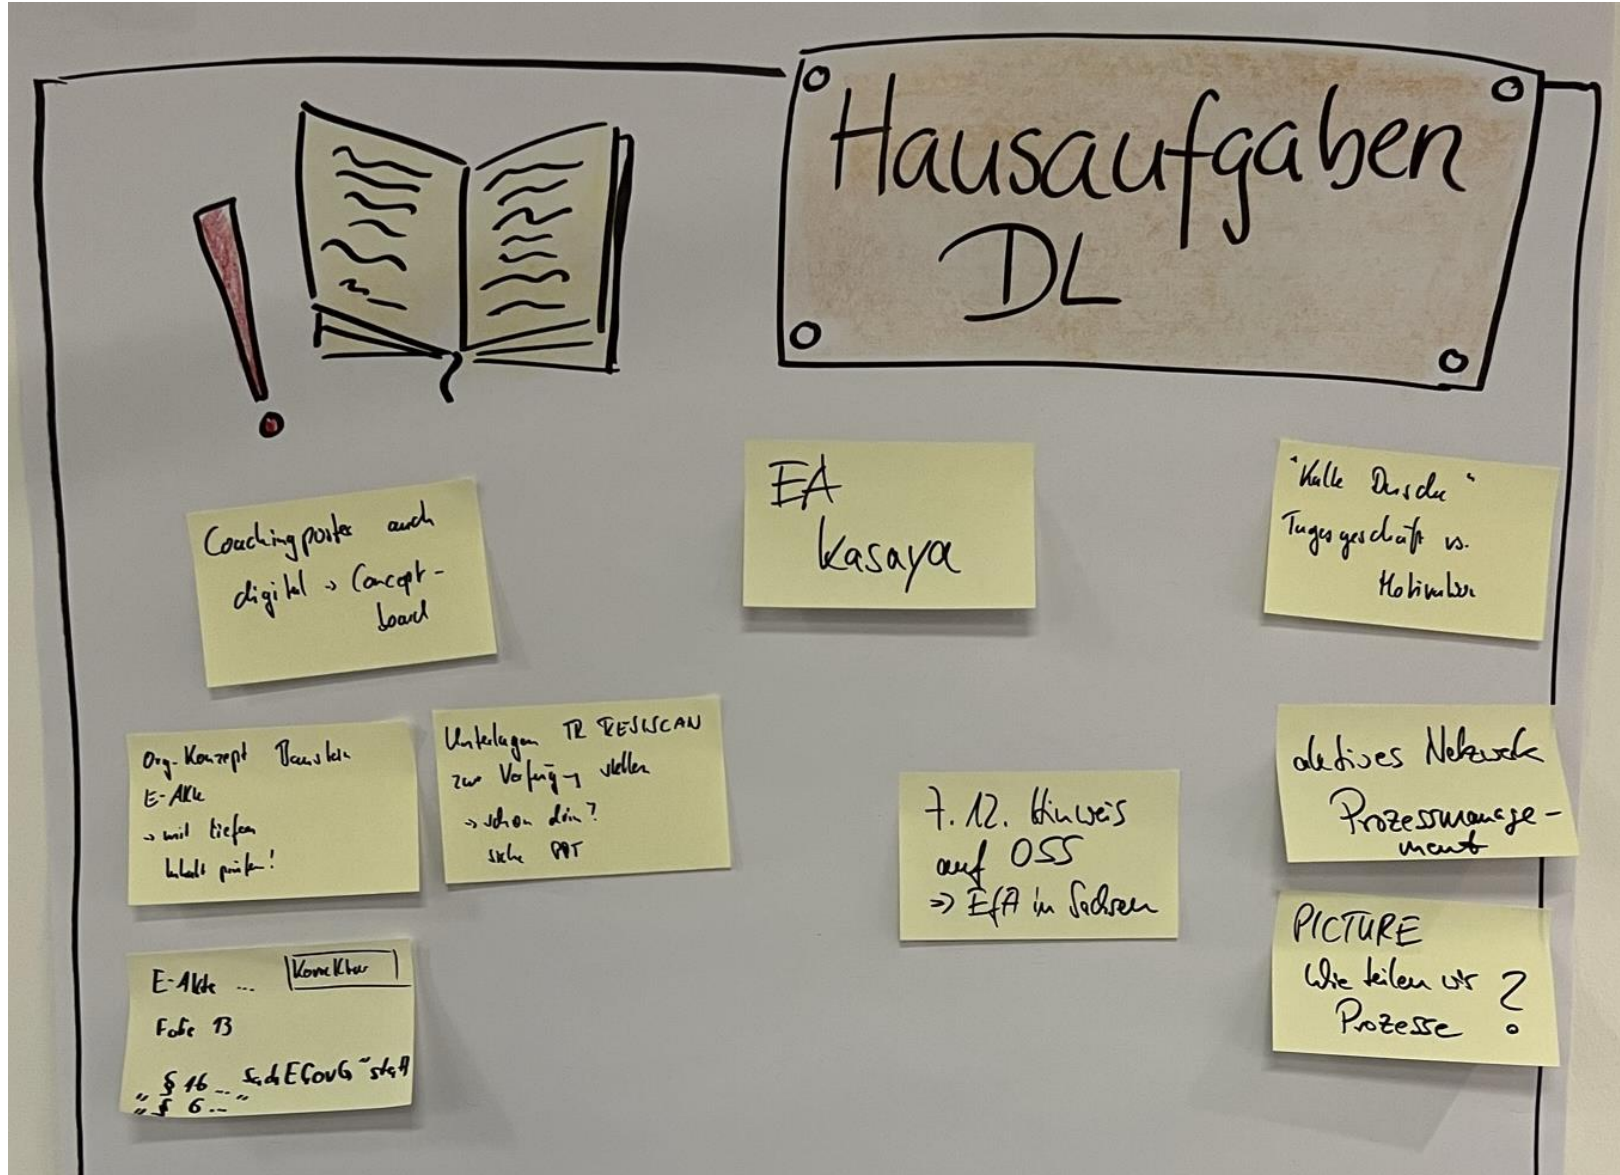 Hausaufgaben
DL
Coachingposter auch
digital → Concept-
board
EA
kasaya
"Kalte Dusche"
Tagesgeschäft vs.
Motivation
Org-Konzept Baustein
E-Akte
→ mit tiefem
Inhalt prüfen!
Unterlagen TR RESISCAN
zur Verfügung stellen
→ schon drin?
siehe PPT
7.12. Hinweis
auf OSS
⇒ EfA in Sachsen
aktives Netzwerk
Prozessmanage-
ment
E-Akte ... Korrektur
Folie 13
"§ 16 ... SächEGovG" statt
"§ 6 ..."
PICTURE
Wie teilen wir
Prozesse ?